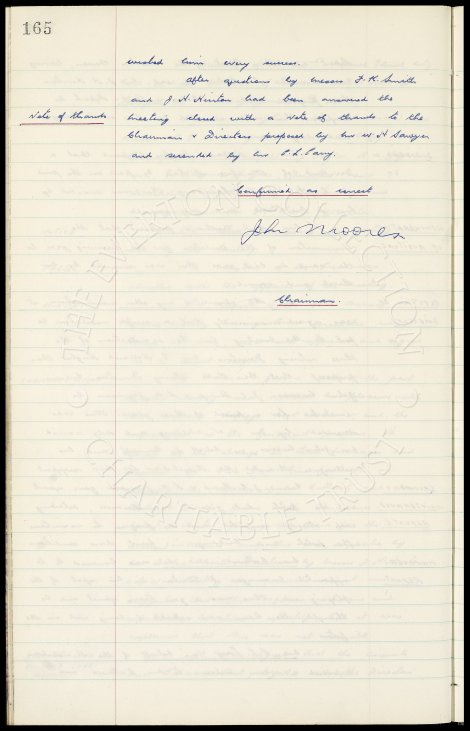 165
wished him every success.
After questions by Messrs F. K. Smith
and J. H. Hinton had been answered the
Vote of thanks
Meeting closed with a vote of thanks to the
Chairman & Directors proposed by Mr W. H. Sawyer
and seconded by Mr
Confirmed as correct
John Moores
Chairman.
THE EVERTON COLLECTION
CHARITABLE TRUST